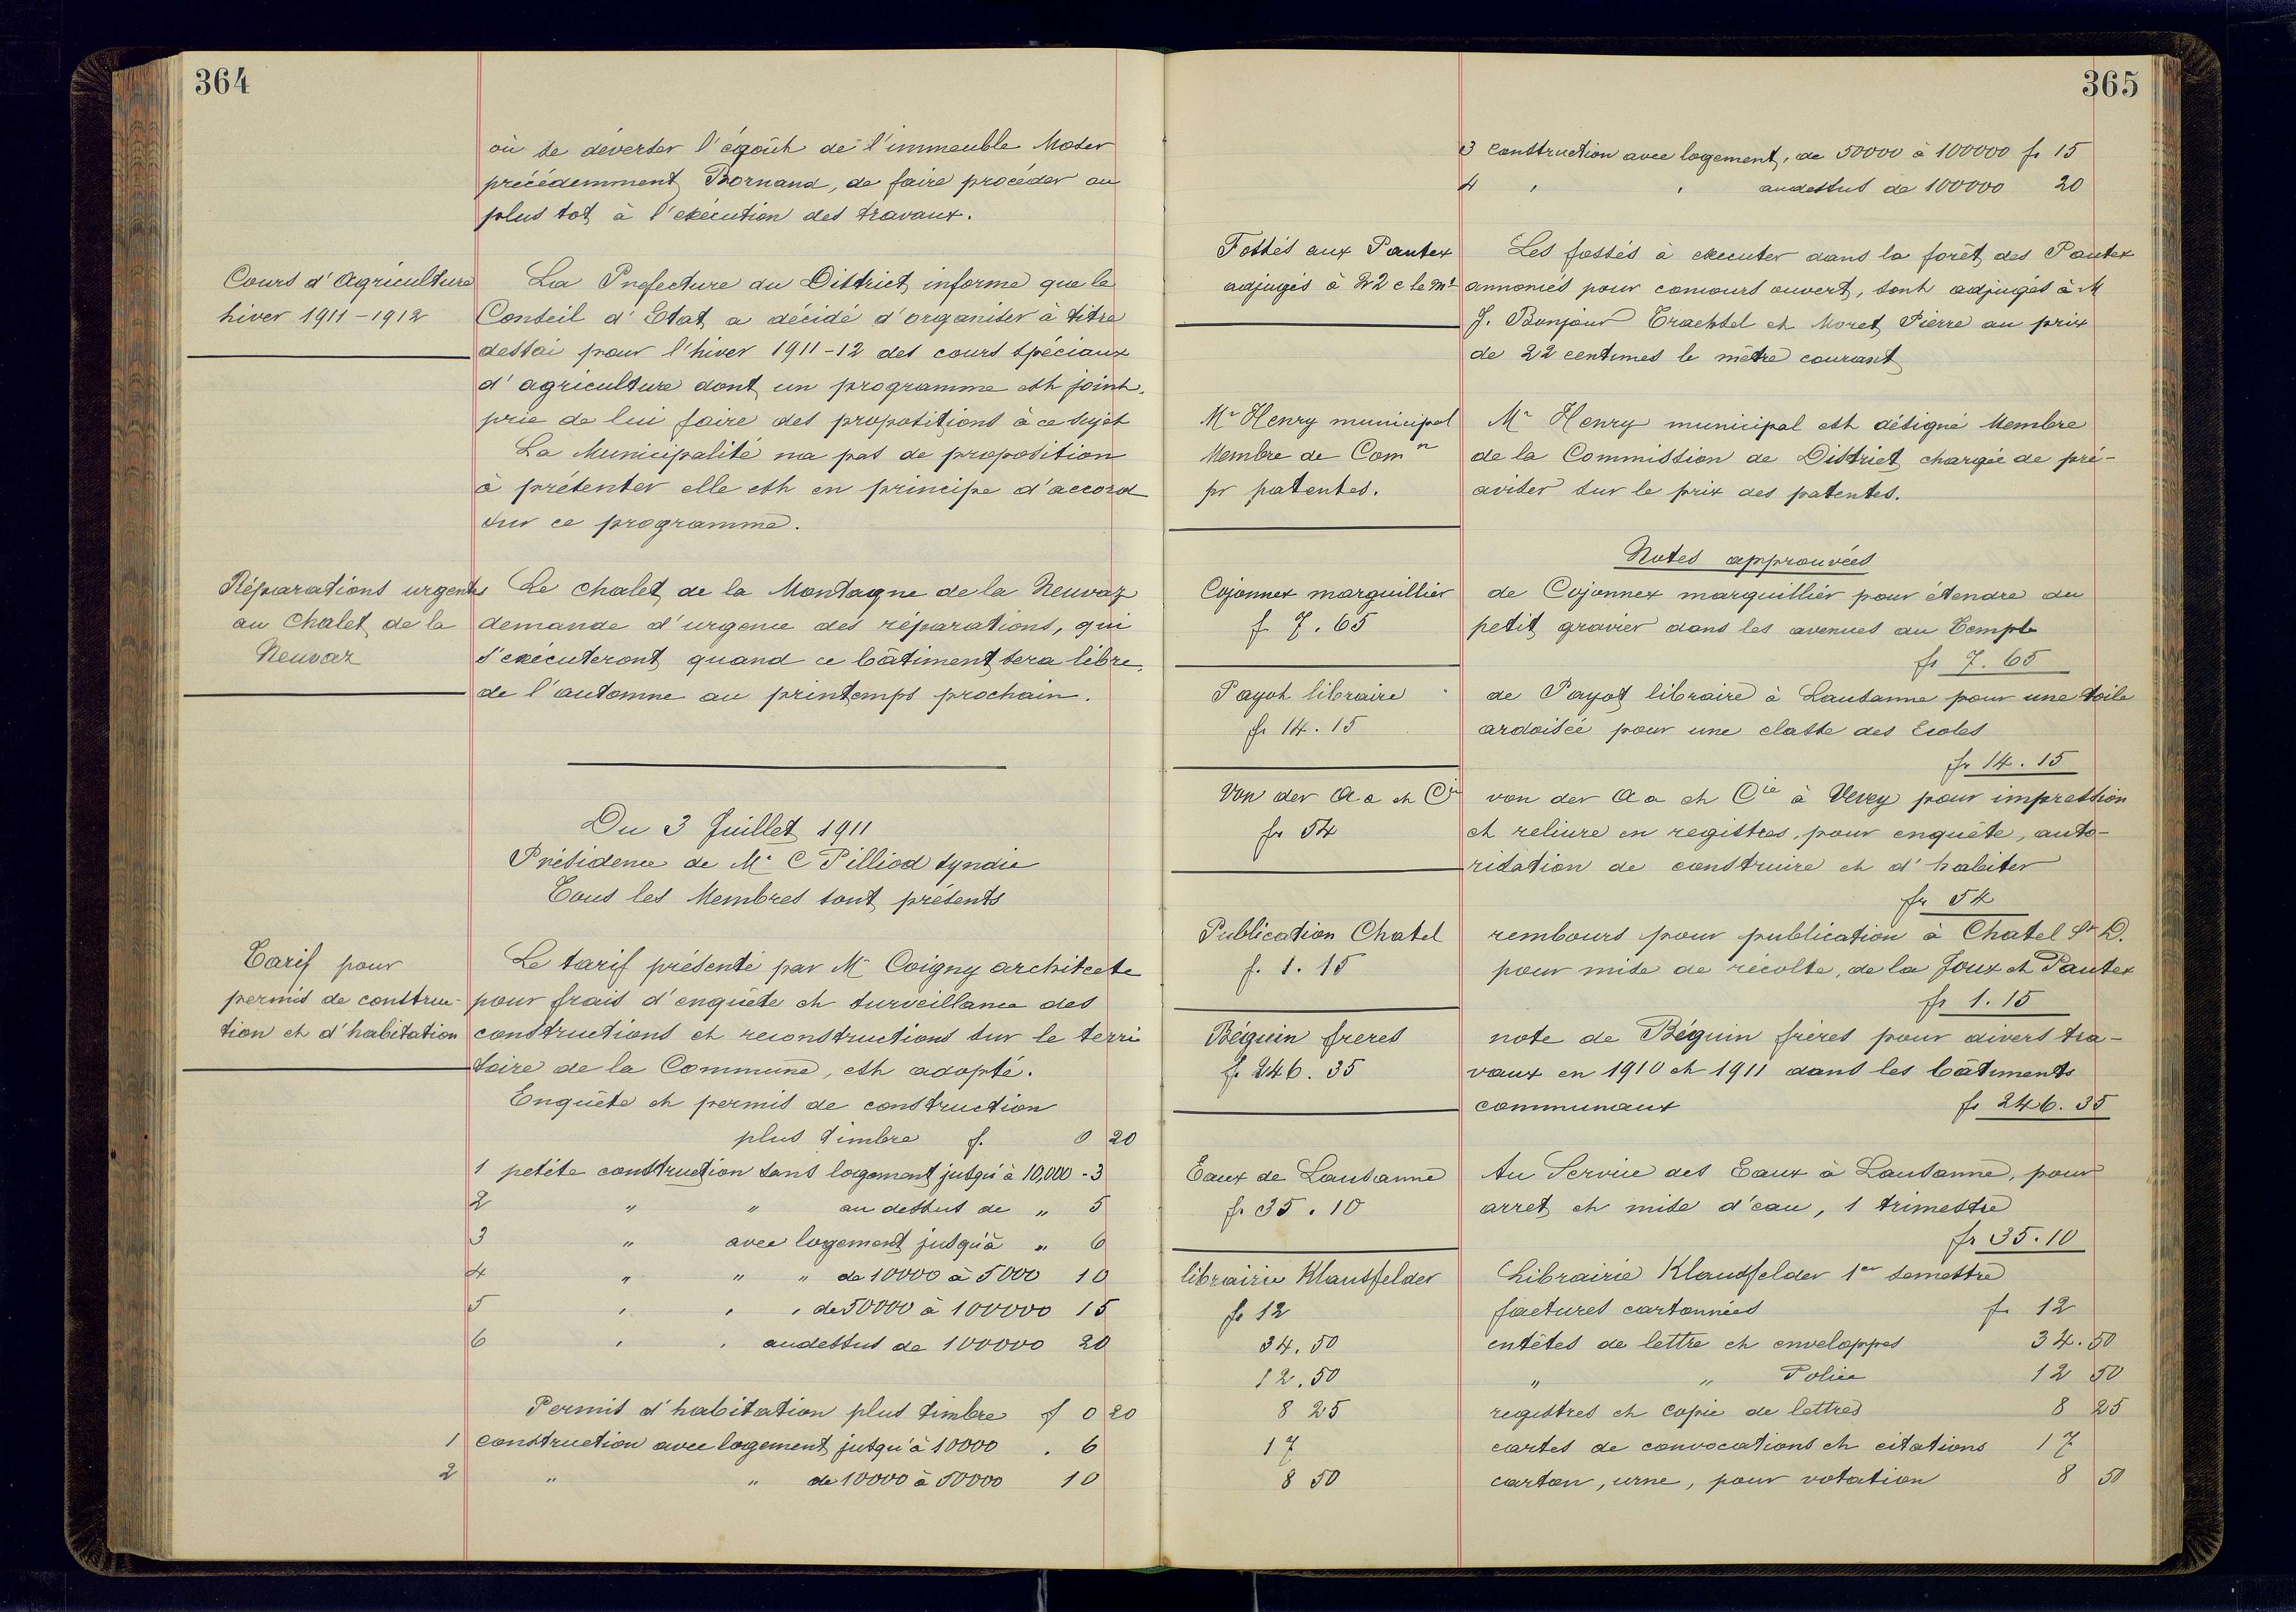 364
où se déverser l'égoût de l'immeuble Moser
précédemment Bornand, de faire procéder au
plus tot à l'exécution des travaux.
Cours d'Agriculture
hiver 1911-1912
La Préfecture du District informe que le
Conseil d'Etat a décidé d'organiser à titre
dessai pour l'hiver 1911-12 des cours spéciaux
d'agriculture dont un programme est joint.
prie de lui faire des propositions à ce sujet
La Municipalité na pas de proposition
à présenter elle est en principe d'accord
sur ce programme.
Réparations urgentes
au Chalet de la
Neuvaz
Le chalet de la Montagne de la Neuvaz
demande d'urgence des réparations, qui
s'exécuteront quand ce bâtiment sera libre,
de l'automne au printemps prochain.
Du 3 Juillet 1911
Présidence de Mr C Pilliod syndic
Tous les Membres sont présents
Tarif pour
permis de construc-
tion et d'habitation
Le tarif présenté par Mr Coigny architecte
pour frais d'enquête et surveillance des
constructions et reconstructions sur le terri
toire de la Commune, est adopté.
Enquête et permis de construction
plus timbre f. 0 20
1 petite construction sans logement jusqu'à 10,000 - 3
2 " " au dessus de " 5
3 " avec logement jusqu'à " 6
4 " " " de 10000 à 5000 10
5 " " " de 50000 à 100000 15
6 " " audessus de 100000 20
Permis d'habitation plus timbre f 0 20
1 construction avec logement jusqu'à 10000 . 6
2 " " de 10000 à 50000 10
365
3 construction avec logement, de 50000 à 100000 fr 15
4 " " audessus de 100000 20
Fossés aux Pautex
adjugés à 22 c le mt
Les fossés à executer dans la forêt des Pautex
annoncés pour concours ouvert, sont adjugés à M
J. Bonjour Trachsel et Moret Pierre au prix
de 22 centimes le mètre courant
Mr Henry municipal
Membre de Comn
pr patentes.
Mr Henry municipal est désigné Membre
de la Commission de District chargée de pré-
aviser sur le prix des patentes.
Notes approuvées
Cojonnex marguillier
f. 7.65
de Cojonnex marguillier pour étendre du
petit gravier dans les avenues du Temple
fr 7.65
Payot libraire
fr 14.15
de Payot libraire à Lausanne pour une toile
ardoisée pour une classe des Ecoles
fr 14.15
Von der Aa et Cie
fr 54
von der Aa et Cie à Vevey pour impression
et reliure en registres, pour enquête, auto-
risation de construire et d'habiter
fr 54
Publication Chatel
f. 1.15
rembours pour publication à Chatel St D.
pour mise de récolte, de la Joux et Pautex
fr 1.15
Béguin freres
f. 246.35
note de Béguin frères pour divers tra-
vaux en 1910 et 1911 dans les bâtiments
communaux fr 246.35
Eaux de Lausanne
fr 35.10
Au Service des Eaux à Lausanne, pour
arret et mise d'eau, 1 trimestre
fr 35.10
librairie Klausfelder
fr 12
34.50
12.50
8 25
17
8 50
Librairie Klausfelder 1er semestre
factures cartonnées f. 12
entêtes de lettre et enveloppes 34.50
" " Police 12 50
registres et copie de lettres 8 25
cartes de convocations et citations 17
carton, urne, pour votation 8 50